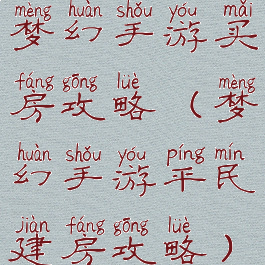 mèng huàn shǒu yóu mǎi
梦幻手游买
fáng gōng lüè mèng
房攻略（梦
huàn shǒu yóu píng mín
幻手游平民
jiàn fáng gōng lüè
建房攻略）